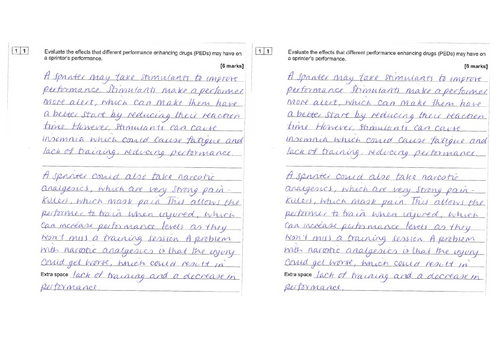 1 1 Evaluate the effects that different performance enhancing drugs (PEDs) may have on
a sprinter's performance.
[6 marks]
A sprinter may take stimulants to improve
performance. Stimulants make a performer
more alert, which can make them have
a better start by reducing their reaction
time. However, stimulants can cause
insomnia which could cause fatigue and
lack of training, reducing performance.
A sprinter could also take narcotic
analgesics, which are very strong pain-
killers, which mask pain. This allows the
performer to train when injured, which
can increase performance levels as they
won't miss a training session. A problem
with narcotic analgesics is that the injury
could get worse, which could result in
Extra space lack of training and a decrease in
performance.
1 1 Evaluate the effects that different performance enhancing drugs (PEDs) may have on
a sprinter's performance.
[6 marks]
A sprinter may take stimulants to improve
performance. Stimulants make a performer
more alert, which can make them have
a better start by reducing their reaction
time. However, stimulants can cause
insomnia which could cause fatigue and
lack of training, reducing performance.
A sprinter could also take narcotic
analgesics, which are very strong pain-
killers, which mask pain. This allows the
performer to train when injured, which
can increase performance levels as they
won't miss a training session. A problem
with narcotic analgesics is that the injury
could get worse, which could result in
Extra space lack of training and a decrease in
performance.